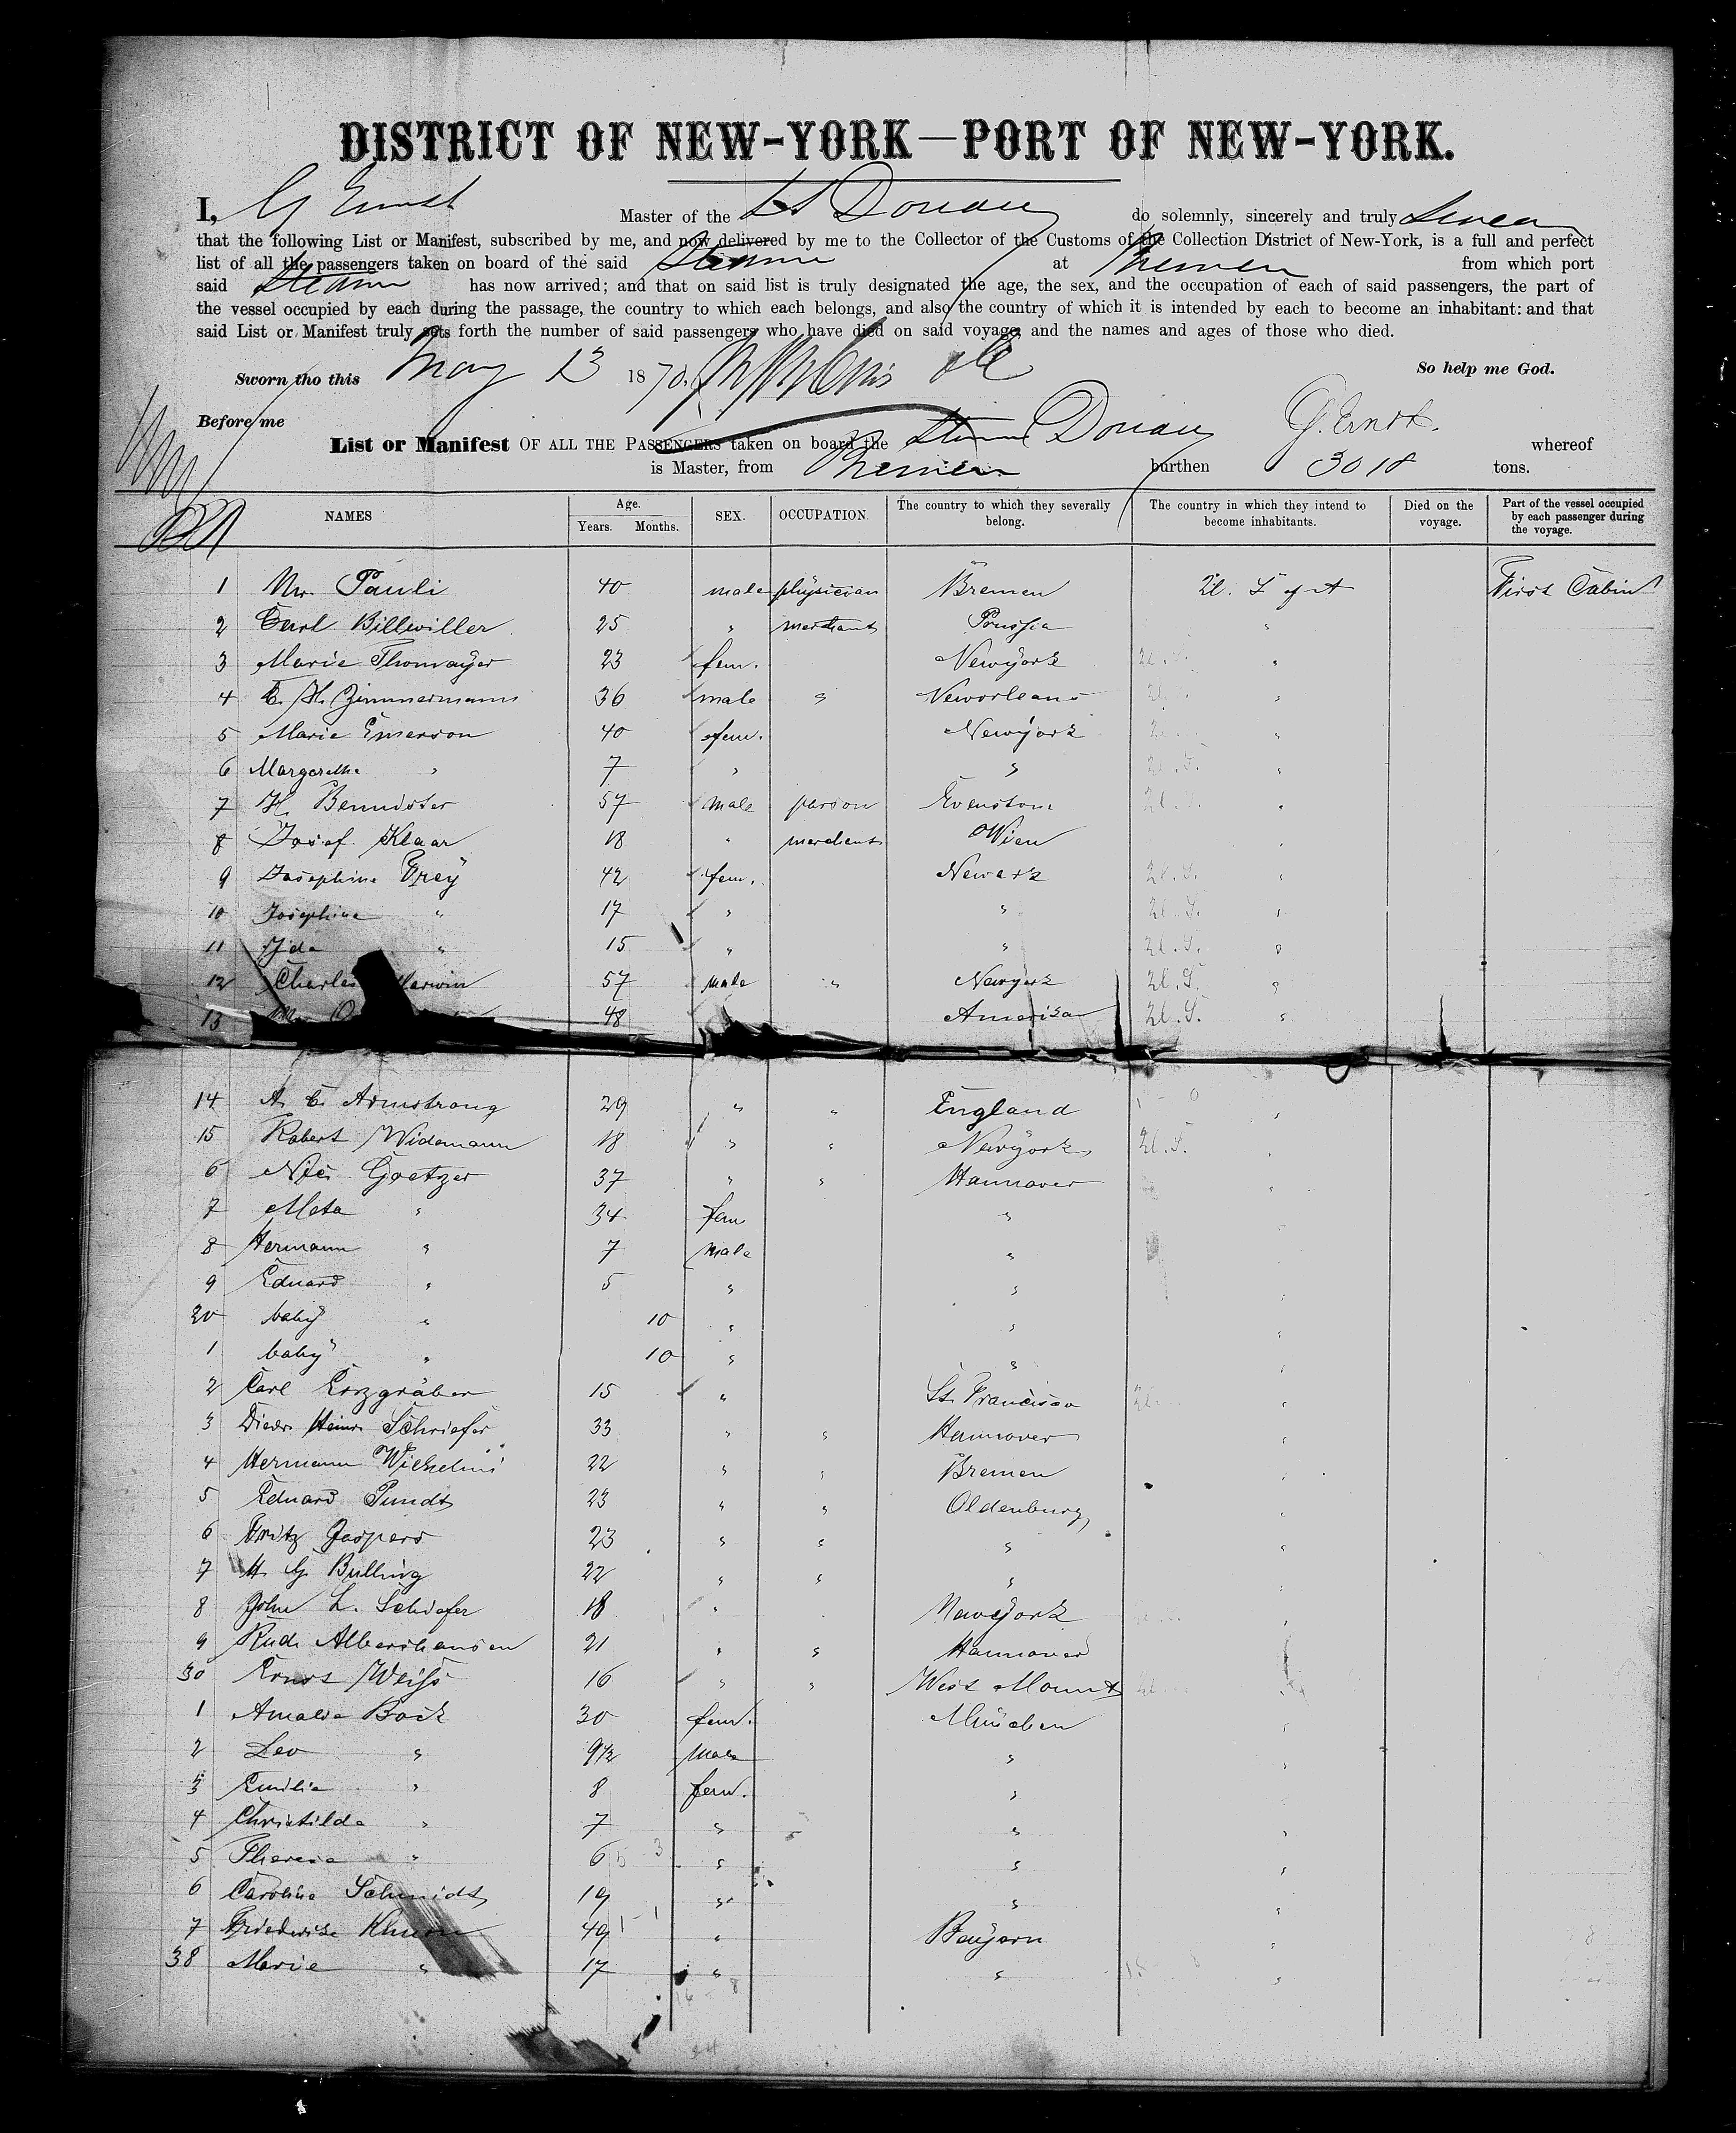 DISTRICT OF NEW-YORK—PORT OF NEW-YORK.
I, G Ernst Master of the SS Donau do solemnly, sincerely and truly swear
that the following List or Manifest, subscribed by me, and now delivered by me to the Collector of the Customs of the Collection District of New-York, is a full and perfect
list of all the passengers taken on board of the said Steamer at Bremen from which port
said Steamer has now arrived; and that on said list is truly designated the age, the sex, and the occupation of each of said passengers, the part of
the vessel occupied by each during the passage, the country to which each belongs, and also the country of which it is intended by each to become an inhabitant: and that
said List or Manifest truly sets forth the number of said passengers who have died on said voyage, and the names and ages of those who died.
Sworn tho this May 13 1870. So help me God.
Before me
List or Manifest OF ALL THE PASSENGERS taken on board the Steamer Donau G. Ernst. whereof
is Master, from Bremen burthen 3018 tons.
NAMES Age. Years. Months. SEX. OCCUPATION. The country to which they severally belong. The country in which they intend to become inhabitants. Died on the voyage. Part of the vessel occupied by each passenger during the voyage.
1 Mr. Pauli 40 male physician Bremen U. S of A First Cabin
2 Carl Billwiller 25 " merchant Prussia "
3 Marie Thomayer 23 fem. Newyork U.S. "
4 C. H. Zimmermann 36 male " Neworleans U. "
5 Marie Emerson 40 fem. Newyork U. "
6 Margarethe " 7 " " U.S. "
7 H. Bennister 57 male parson Evenston U.S. "
8 Josef Klaar 18 " merchant Wien "
9 Josephine Grey 42 fem. Newark U.S. "
10 Josephine " 17 " " U.S. "
11 Ida " 15 " " U.S. "
12 Charles Marwin 57 male " Newyork U.S. "
13 48 America U.S. "
14 A. C. Armstrong 29 " " England "
15 Robert Widemann 18 " " Newyork U.S. "
6 Nic. Goetzer 37 " " Hannover "
7 Meta " 34 fem " "
8 Hermann " 7 male " "
9 Eduard " 5 " " "
20 baby " 10 " " "
1 baby " 10 " " "
2 Carl Erzgräber 15 " St. Francisco U. "
3 Diedr. Heinr. Schriefer 33 " " Hannover "
4 Hermann Wilhelmi 22 " " Bremen "
5 Eduard Pundt 23 " " Oldenburg "
6 Fritz Jaspers 23 " " " "
7 H. G. Bulling 22 " " " "
8 John L. Schiefer 18 " Newyork "
9 Rud. Albershausen 21 " " Hannover "
30 Ernst Weiß 16 " " West Mount U. "
1 Amalia Bock 30 fem. München "
2 Leo " 9½ male " "
3 Emilia " 8 fem. " "
4 Christilda " 7 " " "
5 Therese " 6 " " "
6 Caroline Schmidt 19 " " "
7 Friederike 49 " Bayern "
38 Marie " 17 " " "